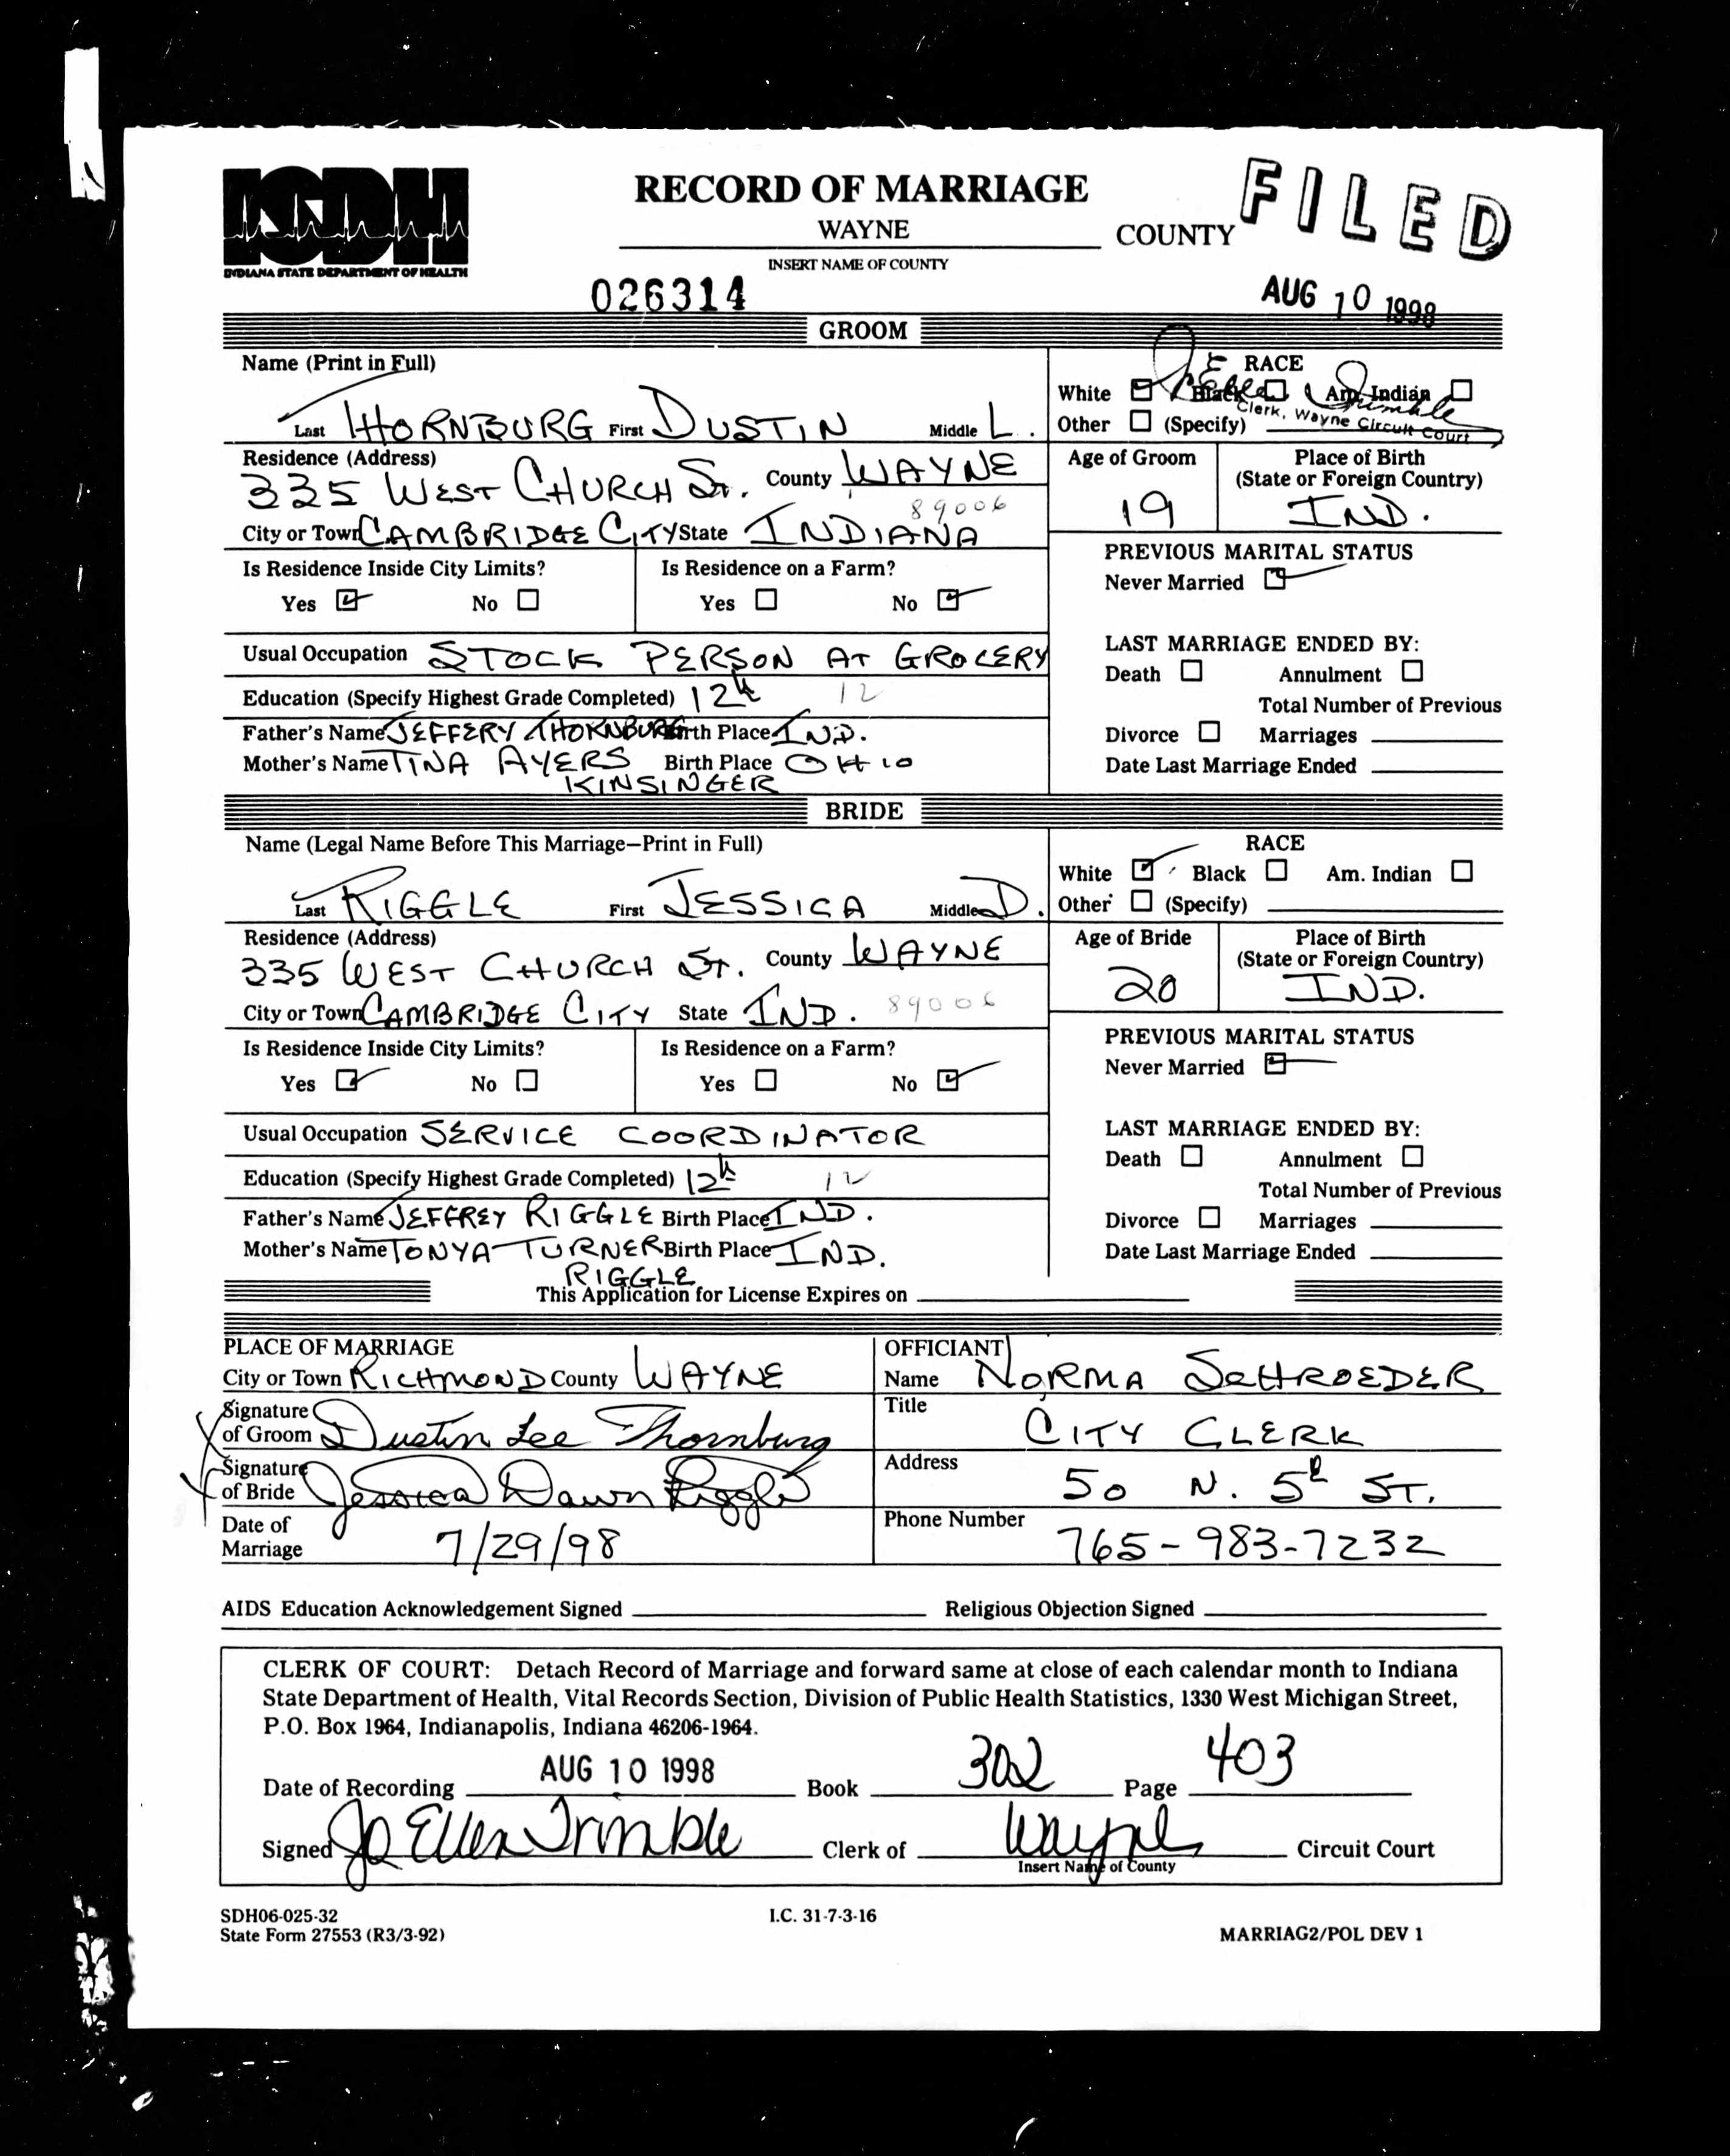 ISDH
INDIANA STATE DEPARTMENT OF HEALTH
RECORD OF MARRIAGE
WAYNE COUNTY
INSERT NAME OF COUNTY
FILED
026314
AUG 10 1998
GROOM
Name (Print in Full)
Last THORNBURG First DUSTIN Middle L.
RACE
White Black Am. Indian
Clerk, Wayne Circuit Court
Other (Specify)
Residence (Address)
335 WEST CHURCH ST. County WAYNE
89006
City or Town CAMBRIDGE CITY State INDIANA
Age of Groom
19
Place of Birth
(State or Foreign Country)
IND.
Is Residence Inside City Limits?
Yes No
Is Residence on a Farm?
Yes No
PREVIOUS MARITAL STATUS
Never Married
Usual Occupation STOCK PERSON AT GROCERY
Education (Specify Highest Grade Completed) 12th 12
Father's Name JEFFERY THORNBURG Birth Place IND.
Mother's Name TINA AYERS Birth Place OHIO
KINSINGER
LAST MARRIAGE ENDED BY:
Death Annulment
Total Number of Previous
Divorce Marriages
Date Last Marriage Ended
BRIDE
Name (Legal Name Before This Marriage–Print in Full)
Last RIGGLE First JESSICA Middle D.
RACE
White Black Am. Indian
Other (Specify)
Residence (Address)
335 WEST CHURCH ST. County WAYNE
City or Town CAMBRIDGE CITY State IND. 89006
Age of Bride
20
Place of Birth
(State or Foreign Country)
IND.
Is Residence Inside City Limits?
Yes No
Is Residence on a Farm?
Yes No
PREVIOUS MARITAL STATUS
Never Married
Usual Occupation SERVICE COORDINATOR
Education (Specify Highest Grade Completed) 12th 12
Father's Name JEFFREY RIGGLE Birth Place IND.
Mother's Name TONYA TURNER Birth Place IND.
RIGGLE
LAST MARRIAGE ENDED BY:
Death Annulment
Total Number of Previous
Divorce Marriages
Date Last Marriage Ended
This Application for License Expires on
PLACE OF MARRIAGE
City or Town RICHMOND County WAYNE
Signature
of Groom Dustin Lee Thornburg
Signature
of Bride Jessica Dawn Riggle
Date of
Marriage 7/29/98
OFFICIANT
Name NORMA SCHROEDER
Title
CITY CLERK
Address
50 N. 5th ST.
Phone Number
765-983-7232
AIDS Education Acknowledgement Signed Religious Objection Signed
CLERK OF COURT: Detach Record of Marriage and forward same at close of each calendar month to Indiana
State Department of Health, Vital Records Section, Division of Public Health Statistics, 1330 West Michigan Street,
P.O. Box 1964, Indianapolis, Indiana 46206-1964.
Date of Recording AUG 10 1998 Book 302 Page 403
Signed Jo Ellen Trimble Clerk of Wayne Circuit Court
Insert Name of County
SDH06-025-32
State Form 27553 (R3/3-92)
I.C. 31-7-3-16
MARRIAG2/POL DEV 1